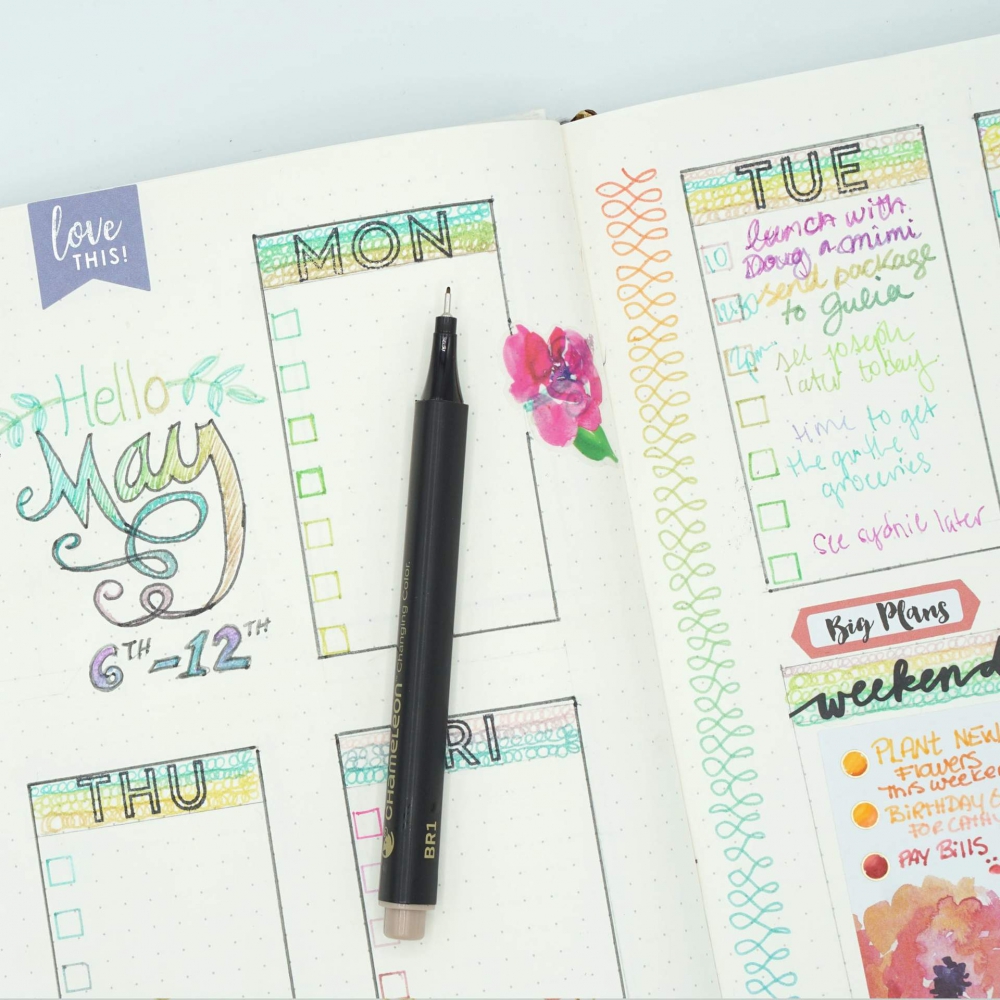 love
THIS!
Hello
May
6TH-12TH
MON
THU
RI
CHAMELEON Changing Color
BR1
TUE
10
lunch with
Doug n mimi
send package
to Gulia
2pm
see joseph
later today
time to get
the
groceries
See sydnie later
Big Plans
weekend
PLANT NEW
Flowers
This weeken
BIRTHDAY
FOR CATHY
PAY Bills